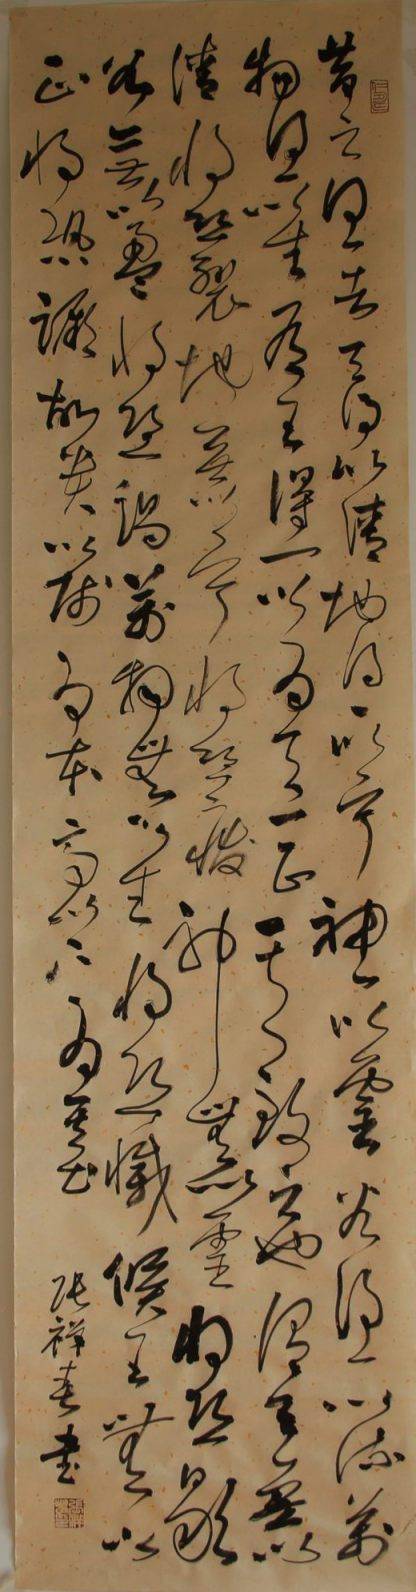 昔之得一者天得以清地得一以寧神一以靈谷得一以盈萬
物得一以生侯王得一以為天下正其致之也謂天無以
清將恐裂地無以寧將恐廢神無以靈將恐歇
谷無以盈將恐竭萬物無以生將恐滅侯王無以
正將恐蹶故貴以賤為本高以下為基
張祥春書